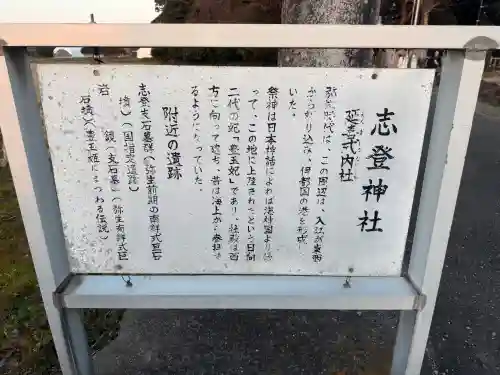 志登神社
延喜式内社
弥生時代は、この周辺は、入江が東西
から入り込み、伊都国の港を形成して
いた。
祭神は日本神話によれば海神国より帰
って、この地に上陸されたという日向
二代の妃「豊玉姫」であり、社殿は西
方に向って建ち、昔は海上から参拝す
るようになっていた。
附近の遺跡
志登支石墓群（弥生前期の南鮮式巨石
墳）（国指定遺跡）
岩鏡（支石墓）（弥生南鮮式巨
石墳）（豊玉姫にまつわる伝説）